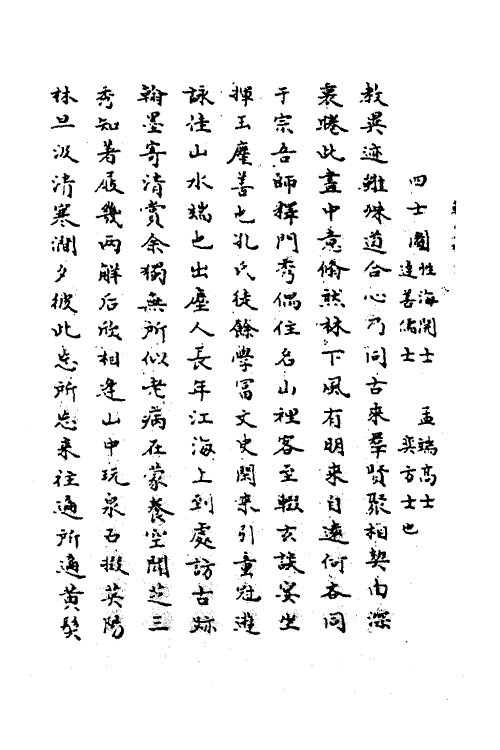 四士圖 性海開士 孟端高士
達善儒士 奕方士也
教異迹雖殊道合心乃同古來羣賢聚相契由深
衷睠此畫中意翛然林下風有朋來自遠何各同
于宗吾師釋門秀偶住名山裡客至輟玄談宴坐
揮玉麈善也孔氏徒餘學冨文史閑来引童冠遊
詠佳山水端也出塵人長年江海上到處訪古跡
翰墨寄清賞余獨無所似老病在蒙養空聞芝三
秀知著屐幾兩解后欣相逢山中玩泉石掇英陽
林旦汲清寒澗夕彼此忘所忘来往適所適黄髮